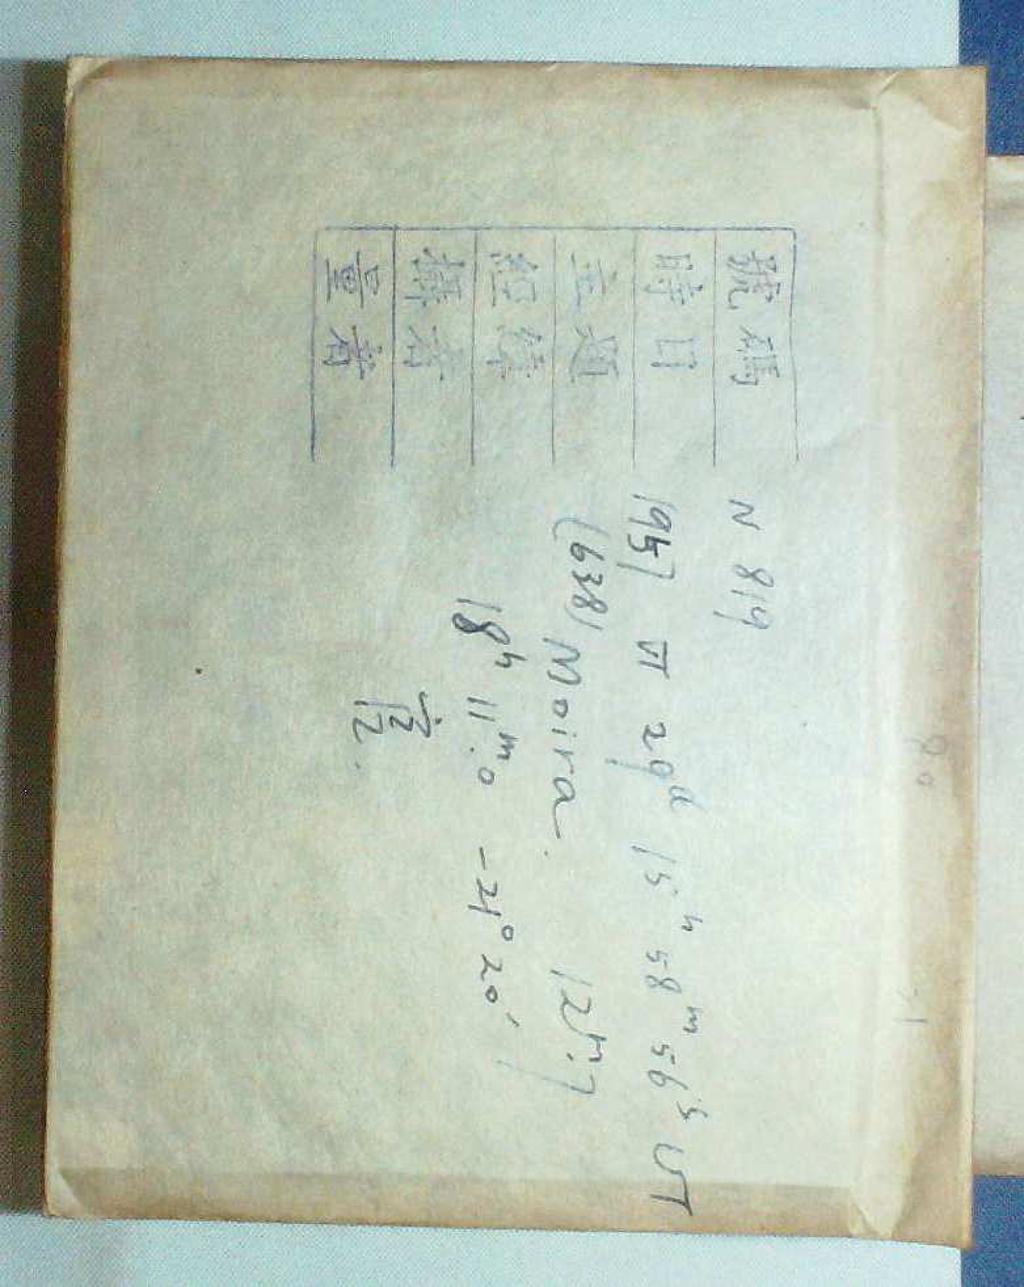 號碼 N 819
時日 1957 VI 29ᵈ 15ʰ 58ᵐ 56ˢ UT
主題 (638) Moira. 12ᵐ.7
經緯 18ʰ 11ᵐ.0 -21° 20′
攝者
量者